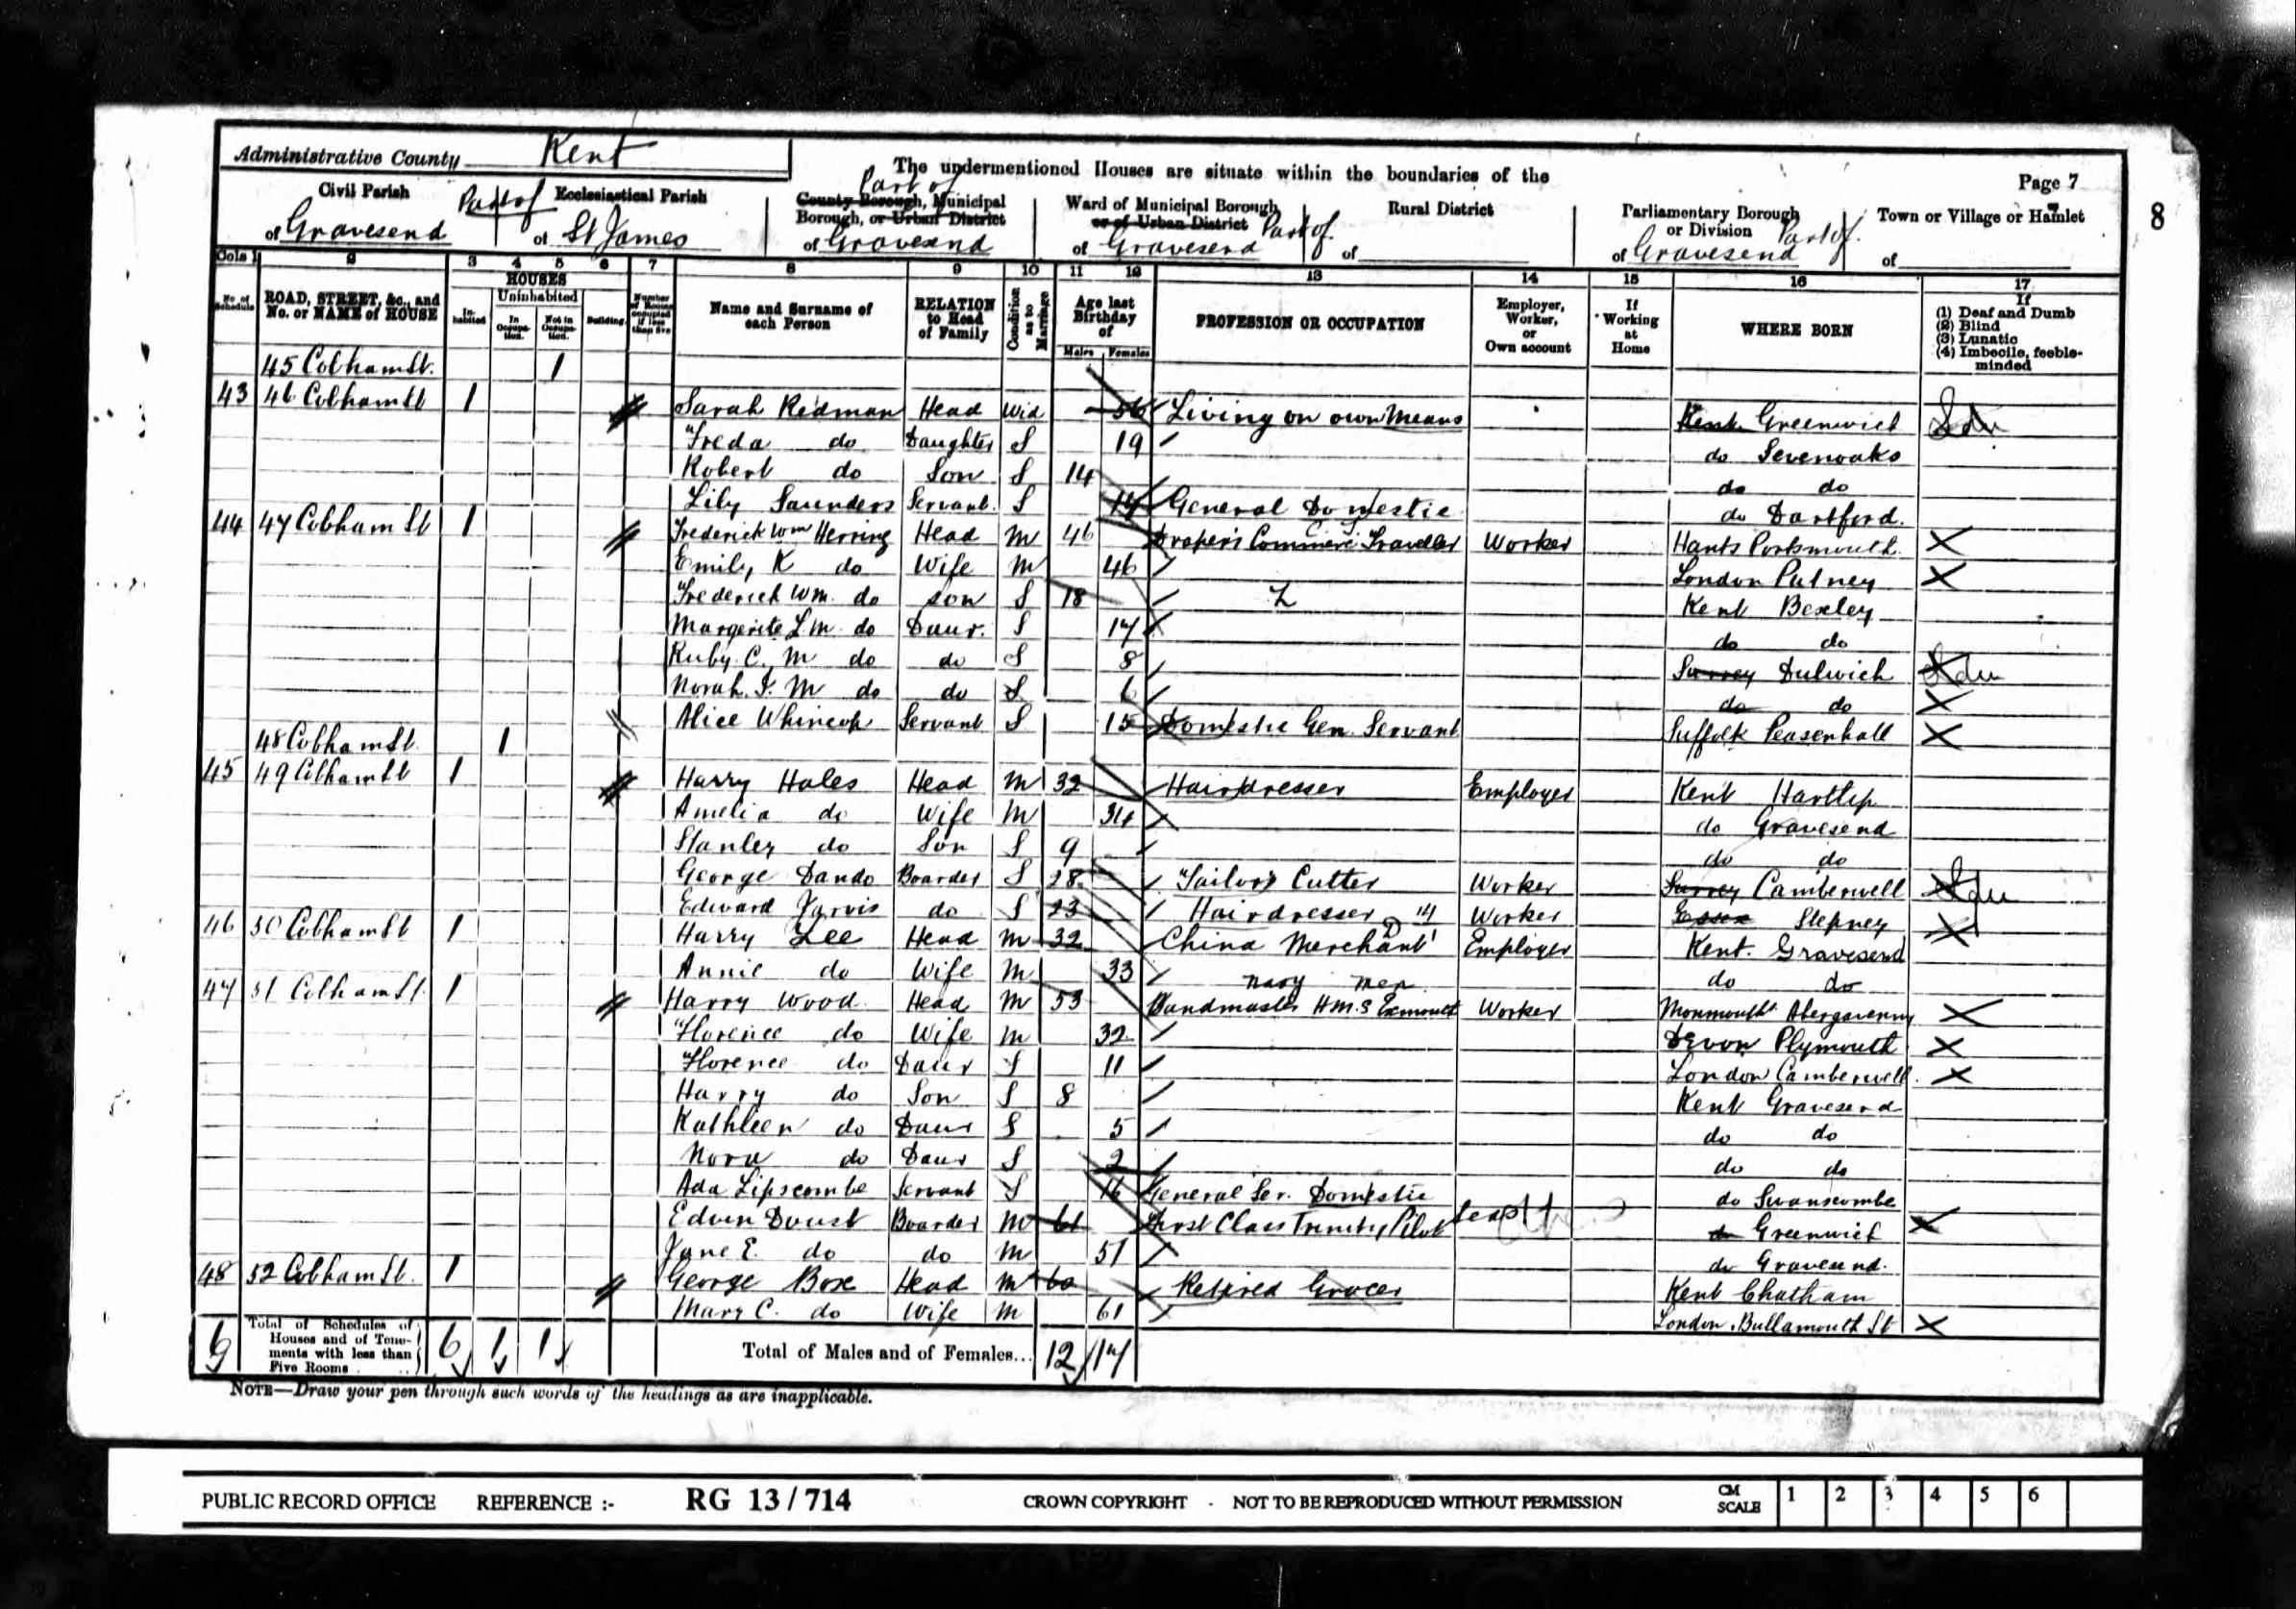 Administrative County Kent
The undermentioned Houses are situate within the boundaries of the
Page 7
8
Civil Parish
of Gravesend
Part of Ecclesiastical Parish
of St James
Part of
County Borough, Municipal
Borough, or Urban District
of Gravesend
Ward of Municipal Borough
or of Urban District Part of
of Gravesend
Rural District
of
Parliamentary Borough
or Division Part of
of Gravesend
Town or Village or Hamlet
of
Cols 1 2 3 4 5 6 7 8 9 10 11 12 13 14 15 16 17
No. of Schedule
ROAD, STREET, &c., and No. or NAME of HOUSE
HOUSES
In-habited
Uninhabited
In Occupa-tion.
Not in Occupa-tion.
Building
Number of Rooms occupied if less than five
Name and Surname of each Person
RELATION to Head of Family
Condition as to Marriage
Age last Birthday of
Males Females
PROFESSION OR OCCUPATION
Employer, Worker, or Own account
If Working at Home
WHERE BORN
If
(1) Deaf and Dumb
(2) Blind
(3) Lunatic
(4) Imbecile, feeble-minded
45 Cobham St. 1
43 46 Cobham St 1 Sarah Redman Head Wid 56 Living on own Means Kent Greenwich Ldn
Freda do Daughter S 19 do Sevenoaks
Robert do Son S 14 do do
Lily Saunders Servant S 14 General Domestic do Dartford
44 47 Cobham St 1 Frederick Wm Herring Head M 46 Draper's Commerc Traveller Worker Hants Portsmouth X
Emily K do Wife M 46 London Putney X
Frederick Wm. do Son S 18 Kent Bexley
Margerite L M do Daur. S 17 do do
Ruby C. M do do S 8 Surrey Dulwich Ldn
Norah I. M do do S 6 do do X
Alice Whincop Servant S 15 Domestic Gen. Servant Suffolk Peasenhall X
48 Cobham St. 1
45 49 Cobham St 1 Harry Hales Head M 32 Hairdresser Employer Kent Hartlip
Amelia do Wife M 34 do Gravesend
Stanley do Son S 9 do do
George Dando Boarder S 28 Tailor's Cutter Worker Surrey Camberwell Ldn
Edward Jarvis do S 23 Hairdresser Worker Essex Stepney X
46 50 Cobham St 1 Harry Lee Head M 32 China Merchant Employer Kent. Gravesend
Annie do Wife M 33 do do
navy men
47 51 Cobham St. 1 Harry Wood Head M 53 Bandmaster H.M.S Exmouth Worker Monmouth Abergavenny X
Florence do Wife M 32 Devon Plymouth X
Florence do Daur S 11 London Camberwell X
Harry do Son S 8 Kent Gravesend
Kathleen do Daur S 5 do do
Nora do Daur S 2 do do
Ada Lipscombe Servant S 16 General Ser. Domestic do Swanscombe
Edwin Doust Boarder M 61 First Class Trinity Pilot do Greenwich X
Jane E. do do M 51 do Gravesend
48 52 Cobham St. 1 George Box Head M 60 Retired Grocer Kent Chatham
Mary C. do Wife M 61 London X
6 Total of Schedules of Houses and of Tene-ments with less than Five Rooms 6 1 1 Total of Males and of Females... 12 17
NOTE—Draw your pen through such words of the headings as are inapplicable.
PUBLIC RECORD OFFICE REFERENCE :- RG 13/714 CROWN COPYRIGHT - NOT TO BE REPRODUCED WITHOUT PERMISSION CM SCALE 1 2 3 4 5 6